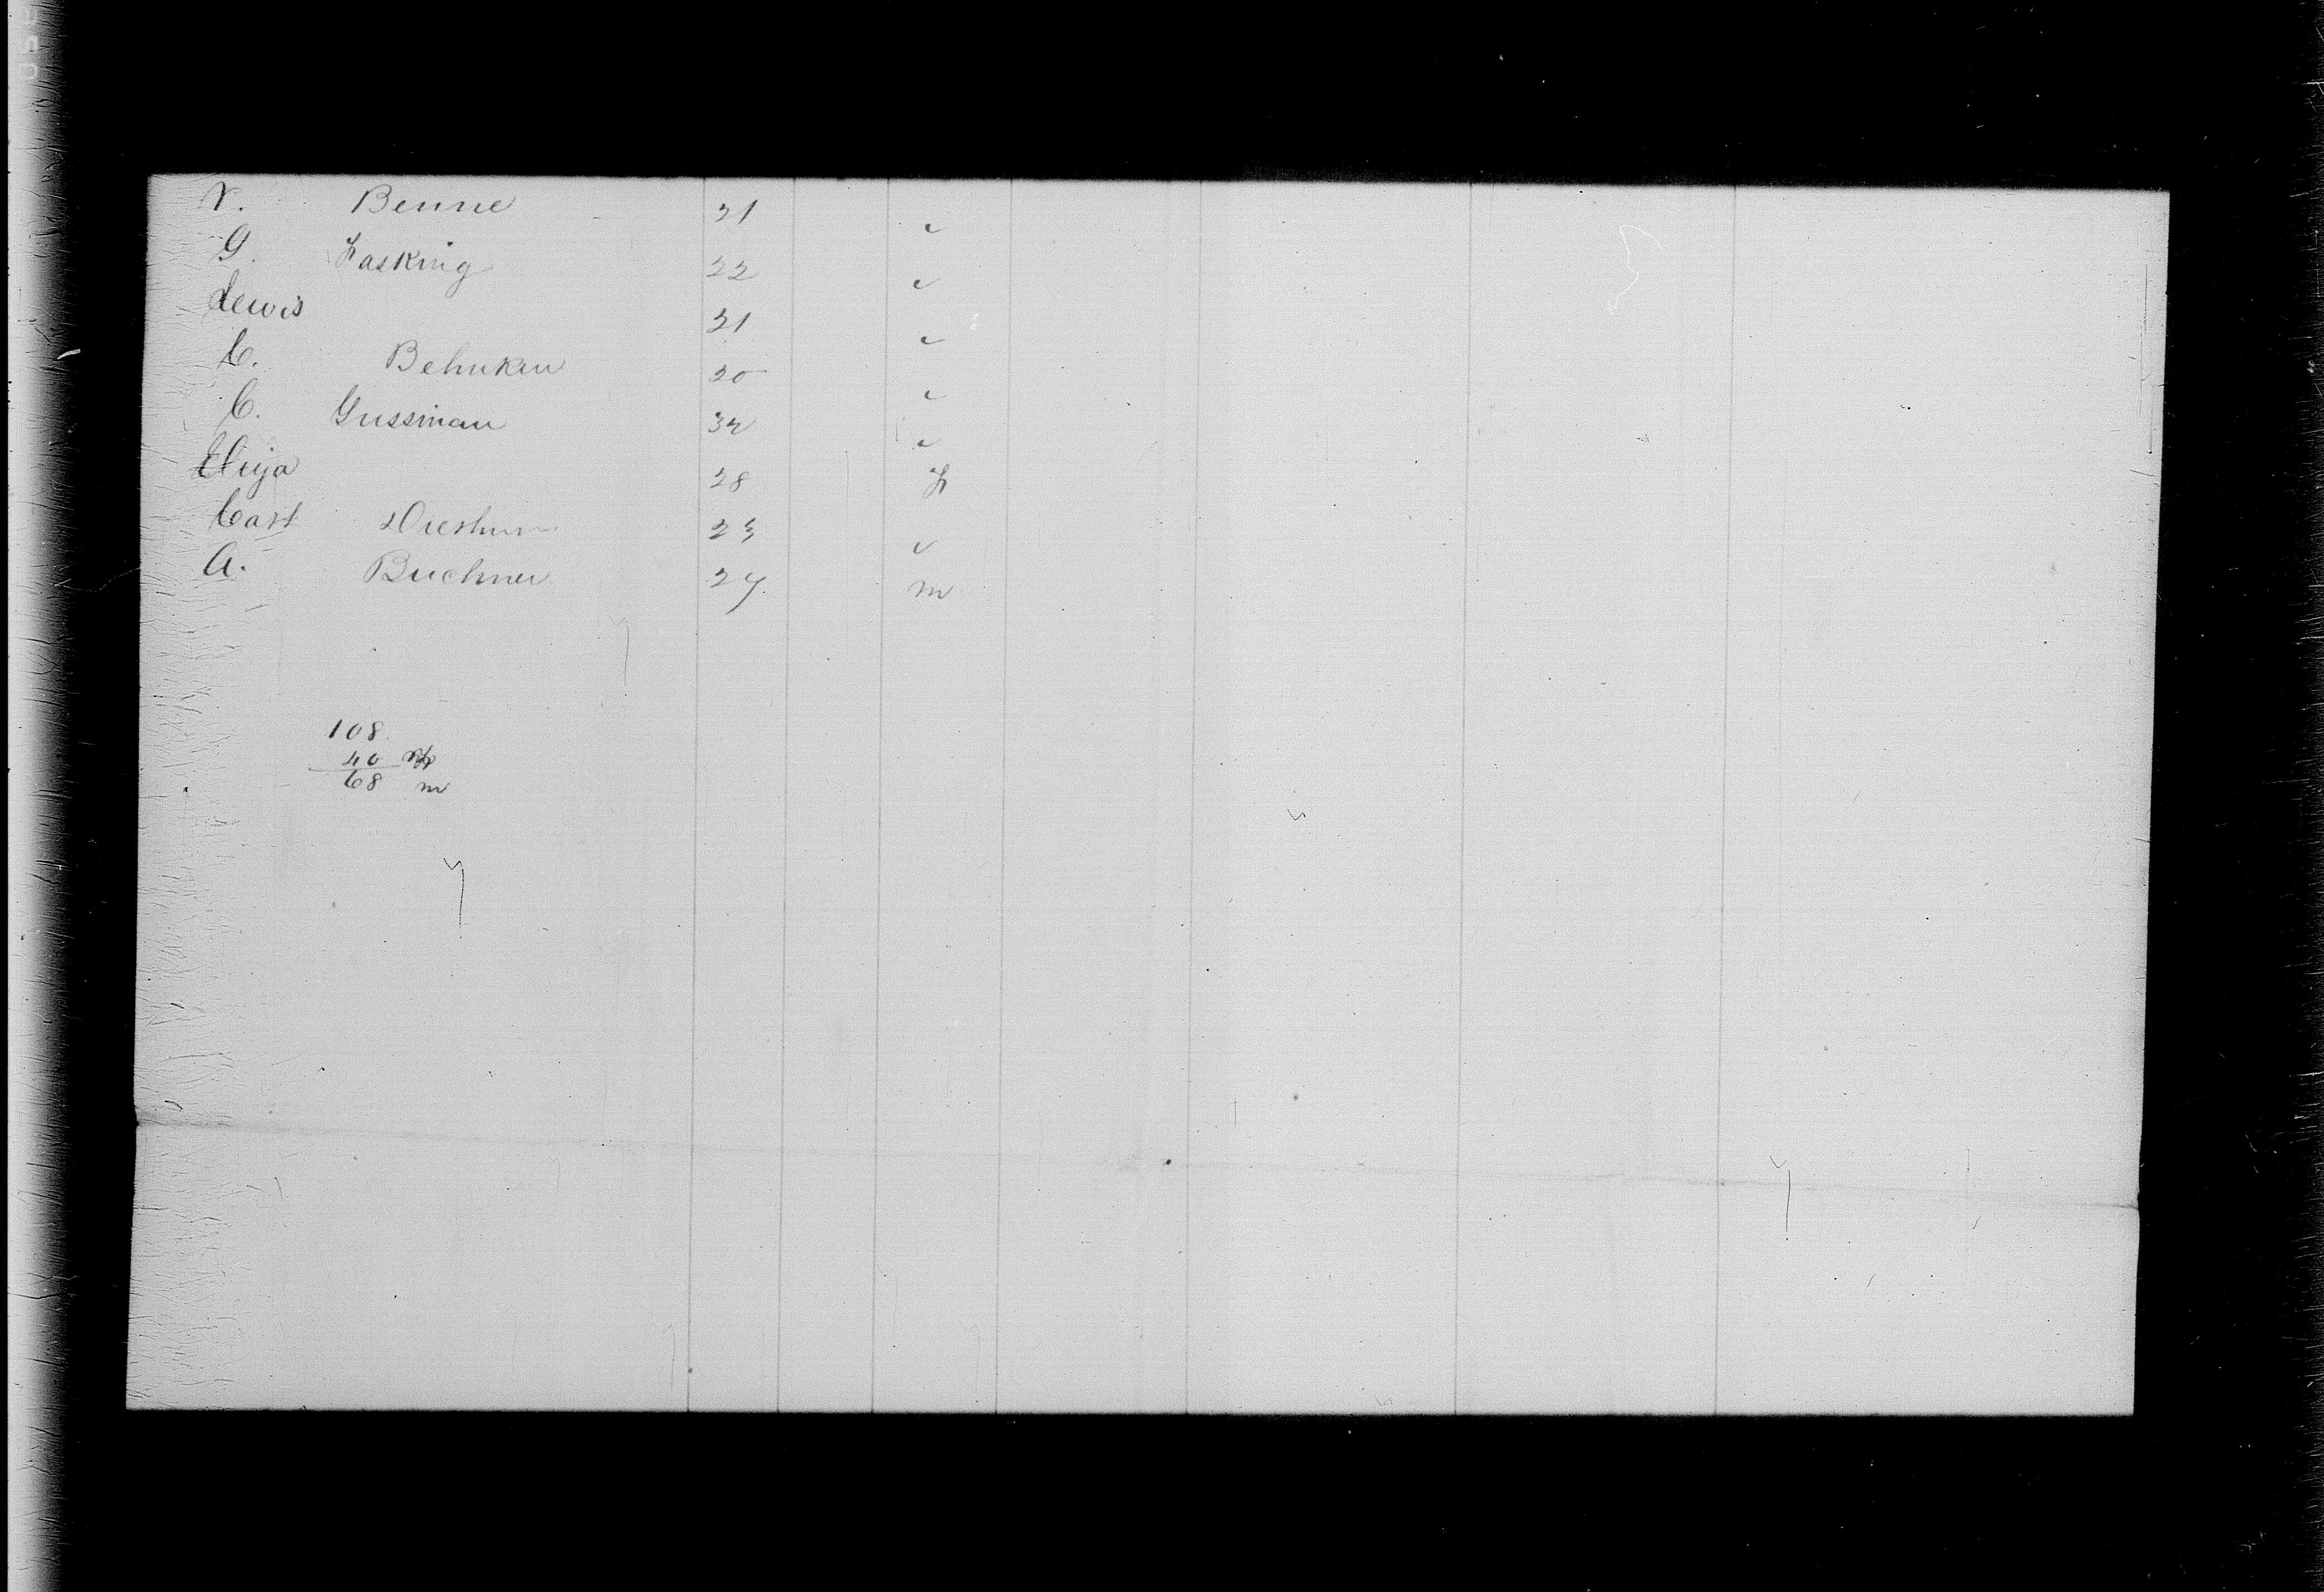 V. Benne 21 "
G. Fasking 22 "
Lewis 21 "
C. Behnken 20 "
C. Gussman 32 "
Eliza 28 f
Carl 23 "
A. Buchner 27 m
108
40 f
68 m